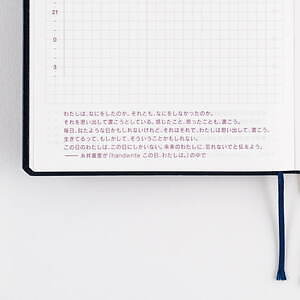 21
0
3
わたしは、なにをしたのか。それとも、なにをしなかったのか。
それを思い出して書こうとしている。感じたこと、思ったことも、書こう。
毎日、似たような日かもしれないけれど、それはそれで、わたしは思い出して、書こう。
生きてるって、もしかして、そういうことかもしれない。
この日のわたしは、この日にしかいない。未来のわたしに、忘れないでと伝えよう。
—— 糸井重里が『handiente この日、わたしは。』の中で